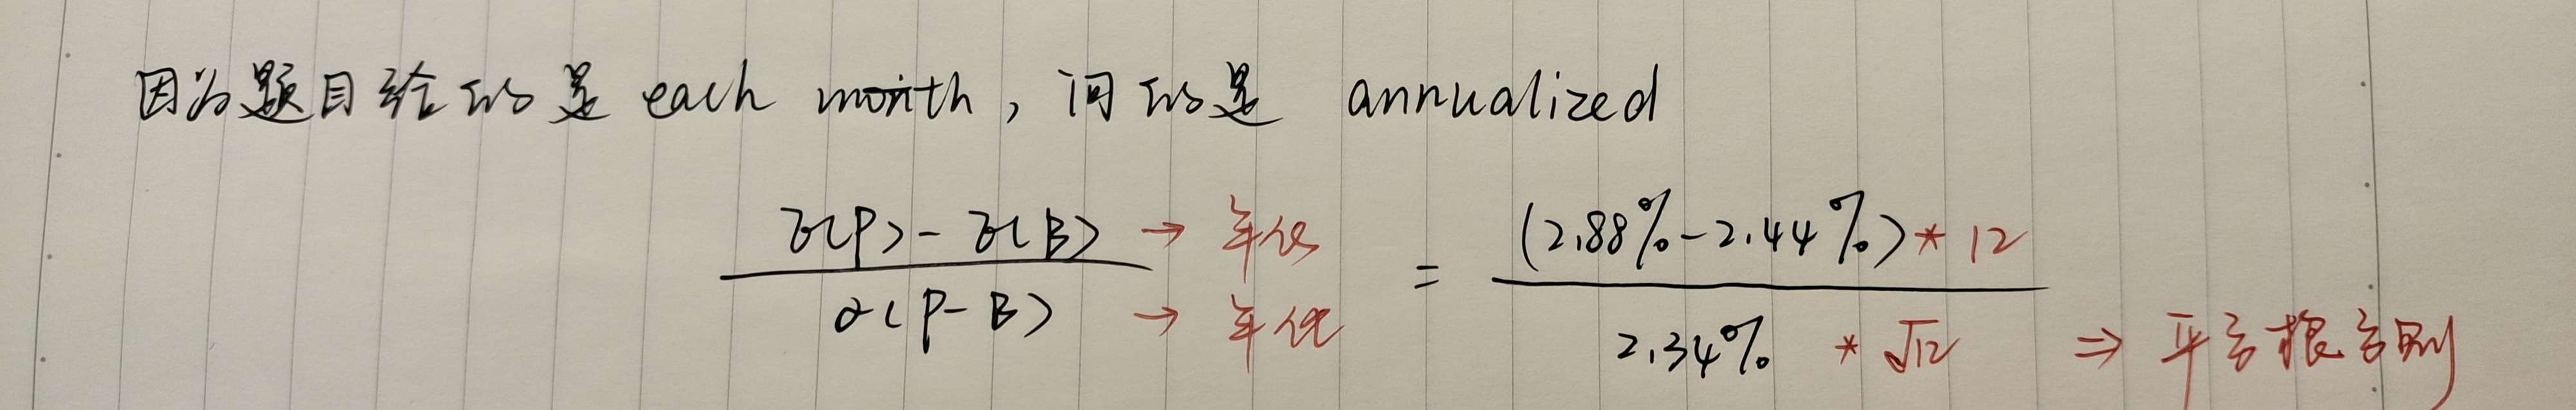 因为题目给的是 each month，问的是 annualized
E(P)-E(B) → 年化 = (2.88%-2.44%)*12
σ(P-B) → 年化 2.34% *√12 ⇒ 平方根法则